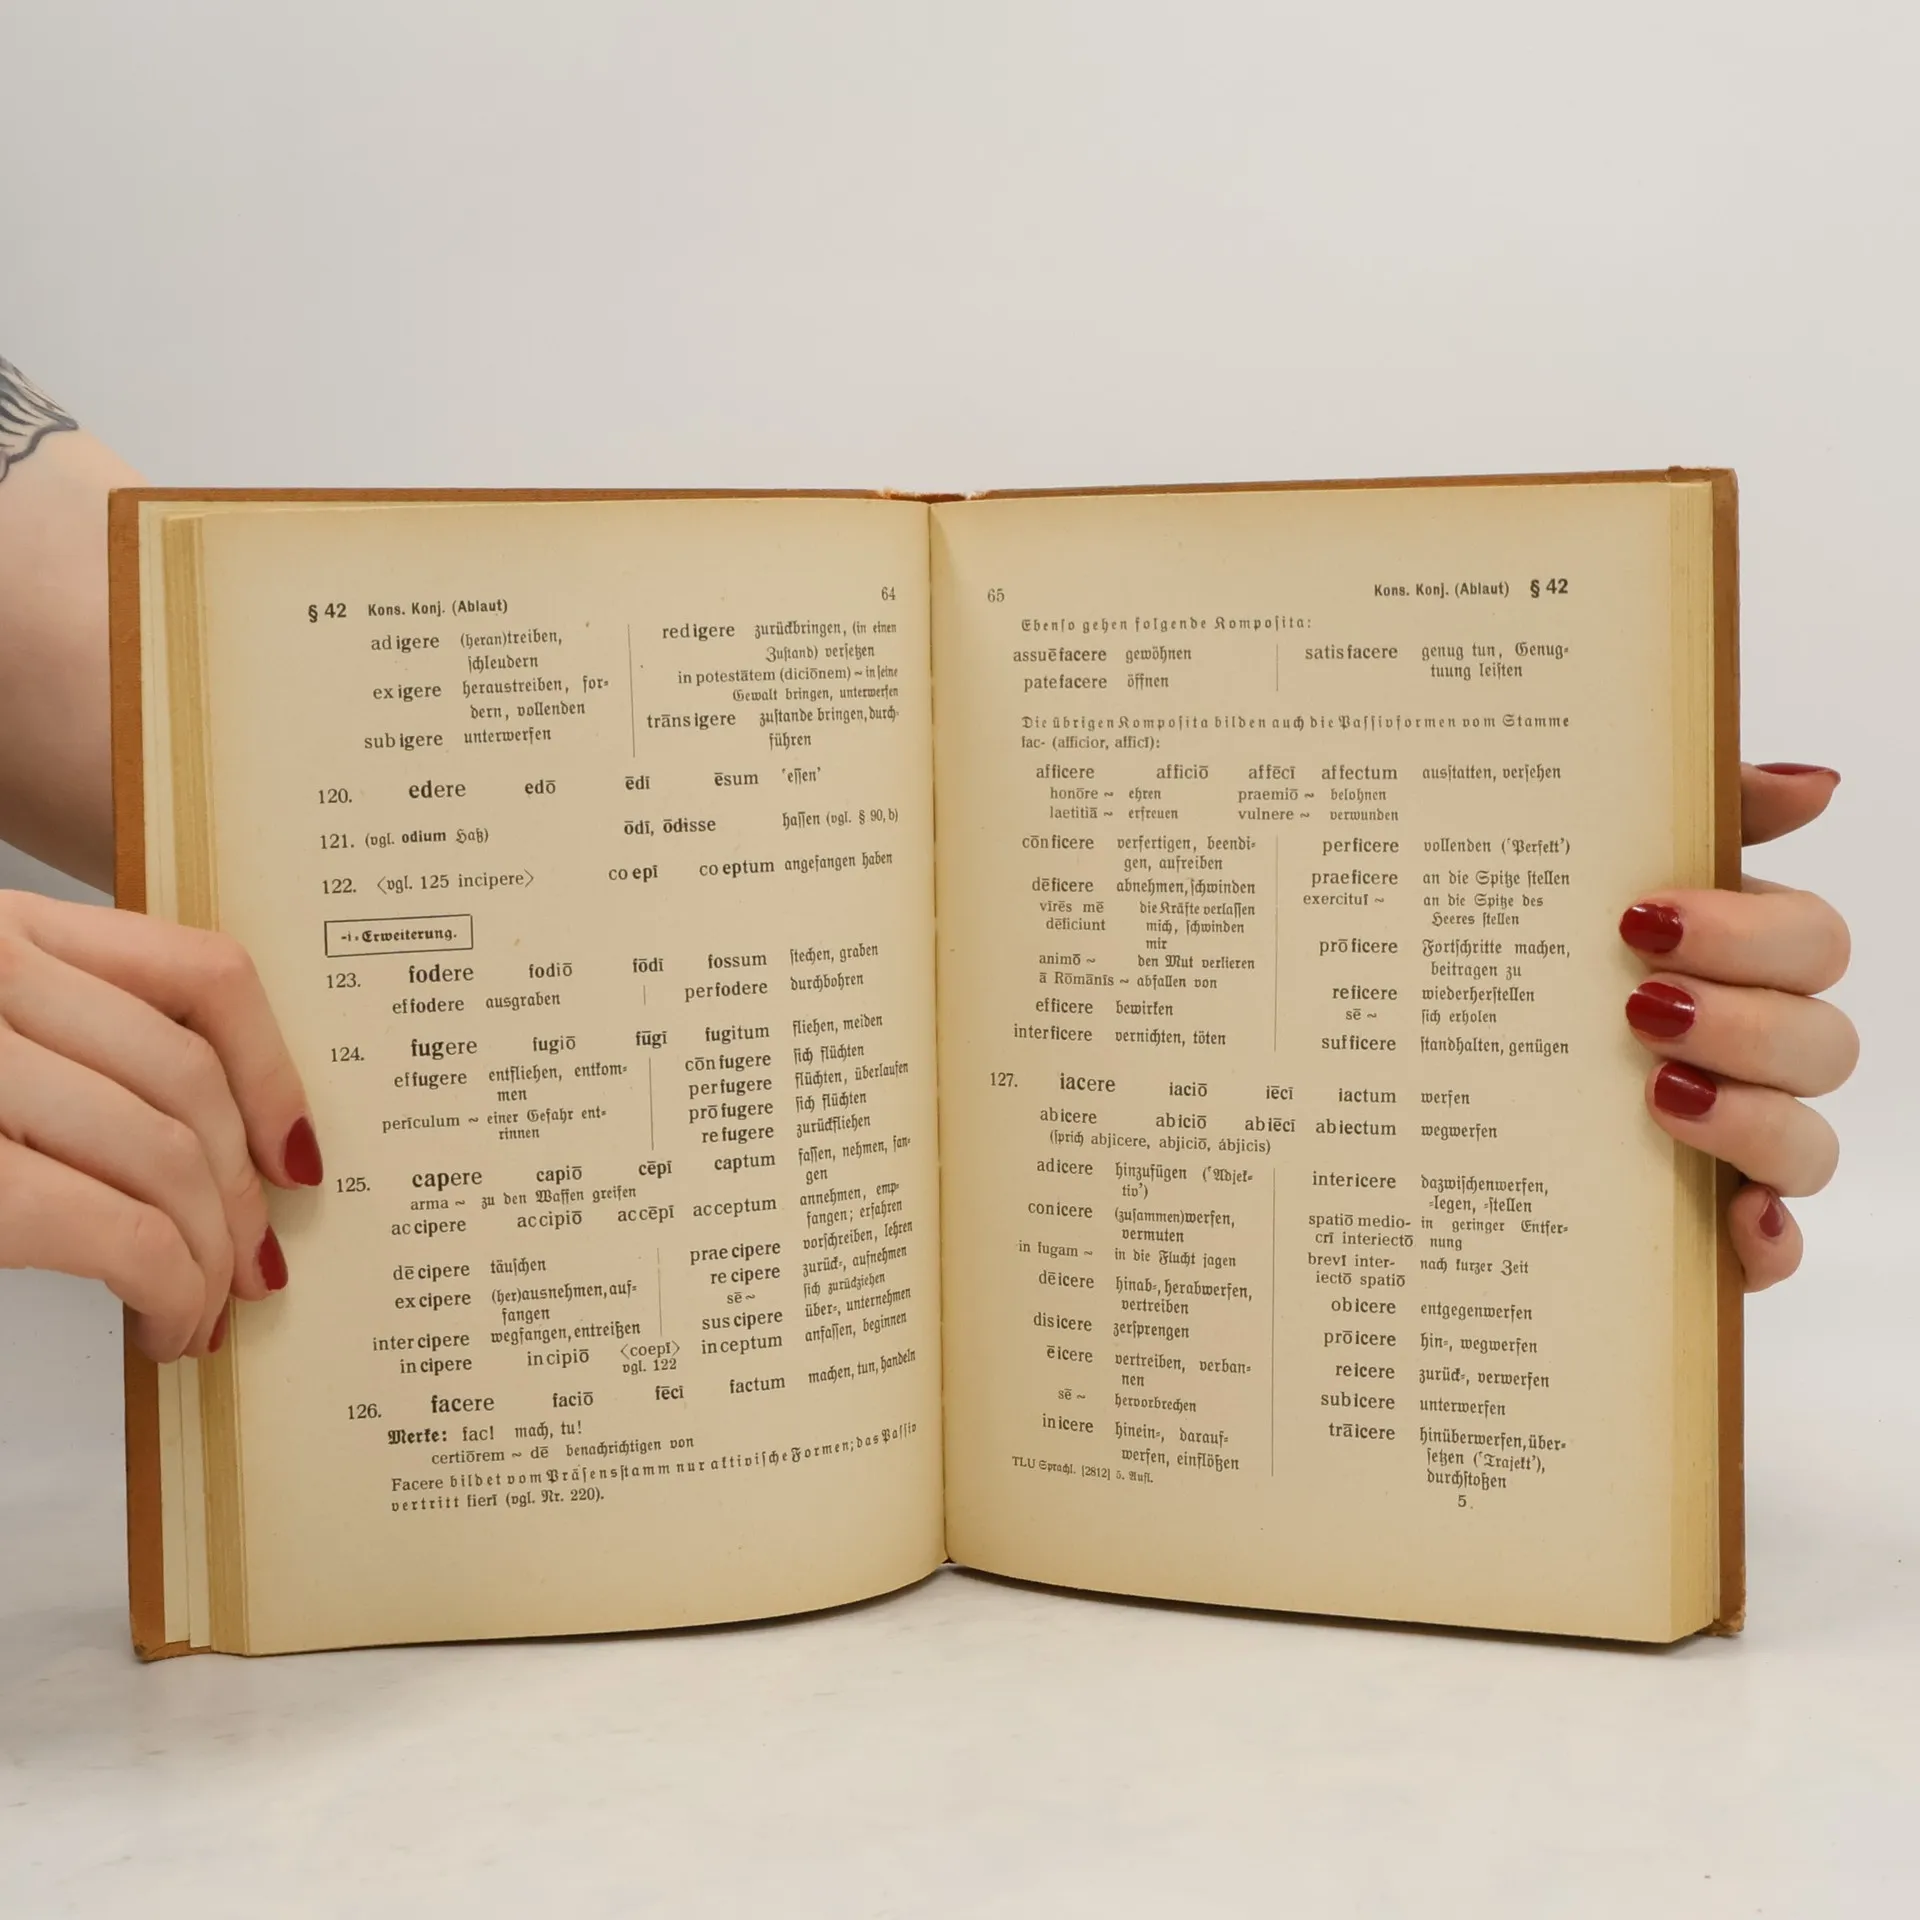 § 42 Kons. Konj. (Ablaut) 64
ad igere (heran)treiben,
ſchleudern
ex igere heraustreiben, for⸗
dern, vollenden
sub igere unterwerfen
red igere zurückbringen, (in einen
Zuſtand) verſetzen
in potestātem (diciōnem) ~ in ſeine
Gewalt bringen, unterwerfen
trāns igere zuſtande bringen, durch⸗
führen
120. edere edō ēdī ēsum 'eſſen'
121. (vgl. odium Haß) ōdī, ōdisse haſſen (vgl. § 90, b)
122. 〈vgl. 125 incipere〉 co epī co eptum angefangen haben
-i-Erweiterung.
123. fodere fodiō fōdī fossum ſtechen, graben
ef fodere ausgraben
per fodere durchbohren
124. fugere fugiō fūgī fugitum fliehen, meiden
ef fugere entfliehen, entkom⸗
men
perīculum ~ einer Gefahr ent⸗
rinnen
cōn fugere ſich flüchten
per fugere flüchten, überlaufen
prō fugere ſich flüchten
re fugere zurückfliehen
125. capere capiō cēpī captum faſſen, nehmen, fan⸗
gen
arma ~ zu den Waffen greifen
ac cipere ac cipiō ac cēpī ac ceptum annehmen, emp⸗
fangen; erfahren
dē cipere täuſchen
ex cipere (her)ausnehmen, auf⸗
fangen
inter cipere wegfangen, entreißen
prae cipere vorſchreiben, lehren
re cipere zurück⸗, aufnehmen
sē ~ ſich zurückziehen
sus cipere über⸗, unternehmen
in cipere in cipiō 〈coepī〉 in ceptum anfaſſen, beginnen
vgl. 122
126. facere faciō fēcī factum machen, tun, handeln
Merke: fac! mach, tu!
certiōrem ~ dē benachrichtigen von
Facere bildet vom Präſensſtamm nur aktiviſche Formen; das Paſſiv
vertritt fierī (vgl. Nr. 220).
65 Kons. Konj. (Ablaut) § 42
Ebenſo gehen folgende Kompoſita:
assuē facere gewöhnen
pate facere öffnen
satis facere genug tun, Genug⸗
tuung leiſten
Die übrigen Kompoſita bilden auch die Paſſivformen vom Stamme
fac- (afficior, afficī):
af ficere af ficiō af fēcī af fectum ausſtatten, verſehen
honōre ~ ehren praemiō ~ belohnen
laetitiā ~ erfreuen vulnere ~ verwunden
cōn ficere verfertigen, beendi⸗
gen, aufreiben
dē ficere abnehmen, ſchwinden
vīrēs mē die Kräfte verlaſſen
dēficiunt mich, ſchwinden
mir
animō ~ den Mut verlieren
ā Rōmānīs ~ abfallen von
ef ficere bewirken
inter ficere vernichten, töten
per ficere vollenden ('Perfekt')
prae ficere an die Spitze ſtellen
exercituī ~ an die Spitze des
Heeres ſtellen
prō ficere Fortſchritte machen,
beitragen zu
re ficere wiederherſtellen
sē ~ ſich erholen
suf ficere ſtandhalten, genügen
127. iacere iaciō iēcī iactum werfen
ab icere ab iciō ab iēcī ab iectum wegwerfen
(ſprich abjicere, abjiciō, ábjicis)
ad icere hinzufügen ('Adjek⸗
tiv')
con icere (zuſammen)werfen,
vermuten
in fugam ~ in die Flucht jagen
dē icere hinab⸗, herabwerfen,
vertreiben
dis icere zerſprengen
ē icere vertreiben, verban⸗
nen
sē ~ hervorbrechen
in icere hinein⸗, darauf⸗
werfen, einflößen
inter icere dazwiſchenwerfen,
⸗legen, ⸗ſtellen
spatiō medio- in geringer Entfer⸗
crī interiectō nung
brevī inter- nach kurzer Zeit
iectō spatiō
ob icere entgegenwerfen
prō icere hin⸗, wegwerfen
re icere zurück⸗, verwerfen
sub icere unterwerfen
trā icere hinüberwerfen, über⸗
ſetzen ('Trajekt'),
durchſtoßen
TLU Sprachl. [2812] 5. Aufl.
5